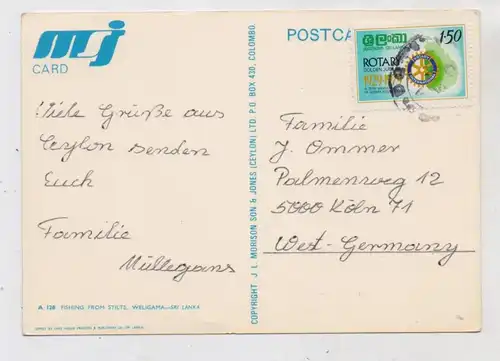 mj
CARD
POSTCA
Viele Grüße aus
Ceylon senden
Euch
Familie
Müllegans
A 128 FISHING FROM STILTS, WELIGAMA—SRI LANKA
COPYRIGHT J. L. MORISON SON & JONES (CEYLON) LTD. P.O. BOX 430, COLOMBO.
ලංකා
1.50
ROTARY
GOLDEN JUBILEE
Familie
J. Ommer
Palmenweg 12
5000 Köln 71
West-Germany